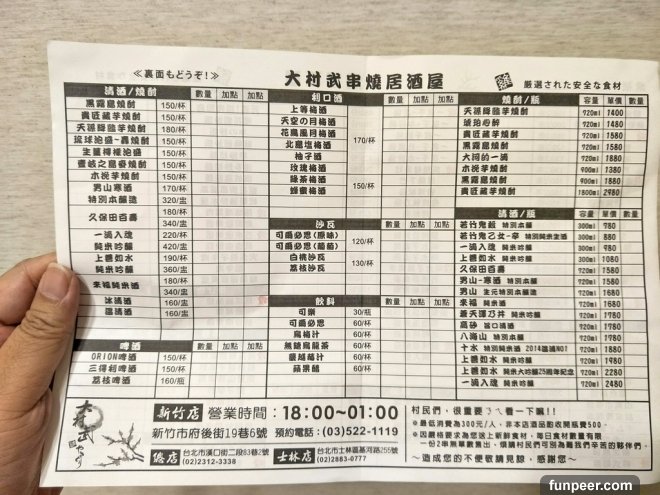 ≪裏面もどうぞ!≫
大村武串燒居酒屋
厳選された安全な食材
清酒/燒酎 數量 加點 加點
黑霧島燒酎 150/杯
貴匠藏芋燒酎 150/杯
天孫降臨芋燒酎 180/杯
琉球泡盛-轟燒酎 150/杯
生薑檸檬泡盛 150/杯
壹岐之島麥燒酎 150/杯
木挽芋燒酎 150/杯
男山寒酒 170/杯
特別本釀造 320/盅
久保田百壽 180/杯
340/盅
一滴入魂 220/杯
純米吟釀 420/盅
上善如水 190/杯
純米吟釀 360/盅
來福純米酒 180/杯
340/盅
冰清酒 160/盅
溫清酒 160/盅
啤酒 數量 加點 加點
ORION啤酒 150/杯
三得利啤酒 150/杯
荔枝啤酒 160/瓶
利口酒 數量 加點 加點
上等梅酒
天空の月梅酒
花鳥風月梅酒
北島塩梅酒
170/杯
柚子酒
玫瑰梅酒
綠茶梅酒
蜂蜜梅酒
150/杯
沙瓦 數量 加點 加點
可爾必思(原味)
可爾必思(葡萄)
120/杯
白桃沙瓦
荔枝沙瓦
130/杯
飲料 數量 加點 加點
可樂 30/瓶
可爾必思 60/杯
烏梅汁 60/杯
無糖烏龍茶 60/杯
蔓越莓汁 60/杯
蘋果醋 60/杯
燒酎/瓶 容量 單價 數量
天孫降臨芋燒酎 720ml 1400
琥珀心醉 720ml 1480
貴匠藏芋燒酎 720ml 1580
黑霧島燒酎 720ml 1580
大河的一滴 720ml 1880
木挽芋燒酎 900ml 1380
黑霧島燒酎 900ml 1880
貴匠藏芋燒酎 1800ml 2980
清酒/瓶 容量 單價 數量
若竹鬼殺 特別本釀 300ml 780
若竹鬼乙女-辛 特別純米生酒 300ml 880
一滴入魂 純米吟釀 300ml 980
上善如水 純米吟釀 300ml 1080
久保田百壽 720ml 1580
男山-寒酒 特別本釀 720ml 1580
男山 生元特別本釀 720ml 1680
來福 純米酒 720ml 1680
蒼天譚乃井 純米吟釀 720ml 1780
高砂 旨口清酒 720ml 1580
八海山 特別本釀 720ml 1780
十水 特別純米酒 2014溫浦NO1 720ml 1880
上善如水 純米吟釀 720ml 1980
上善如水 純米大吟釀25周年紀念 720ml 2280
一滴入魂 純米吟釀 720ml 2480
大村武
新竹店 營業時間：18:00~01:00
新竹市府後街19巷6號 預約電話：(03)522-1119
總店 台北市漢口街二段83巷2號
(02)2312-3338
士林店 台北市士林區基河路255號
(02)2883-0777
村民們，很重要 看一下嘛!!
※最低消費為300元/人，非本店酒品酌收開瓶費500
※因嚴格要求為您送上新鮮食材，每日食材數量有限
一份2串無單數進出，煩請村民們可別為難我們辛苦的夥伴們
~造成您的不便敬請見諒，感謝您~
funpeer.com